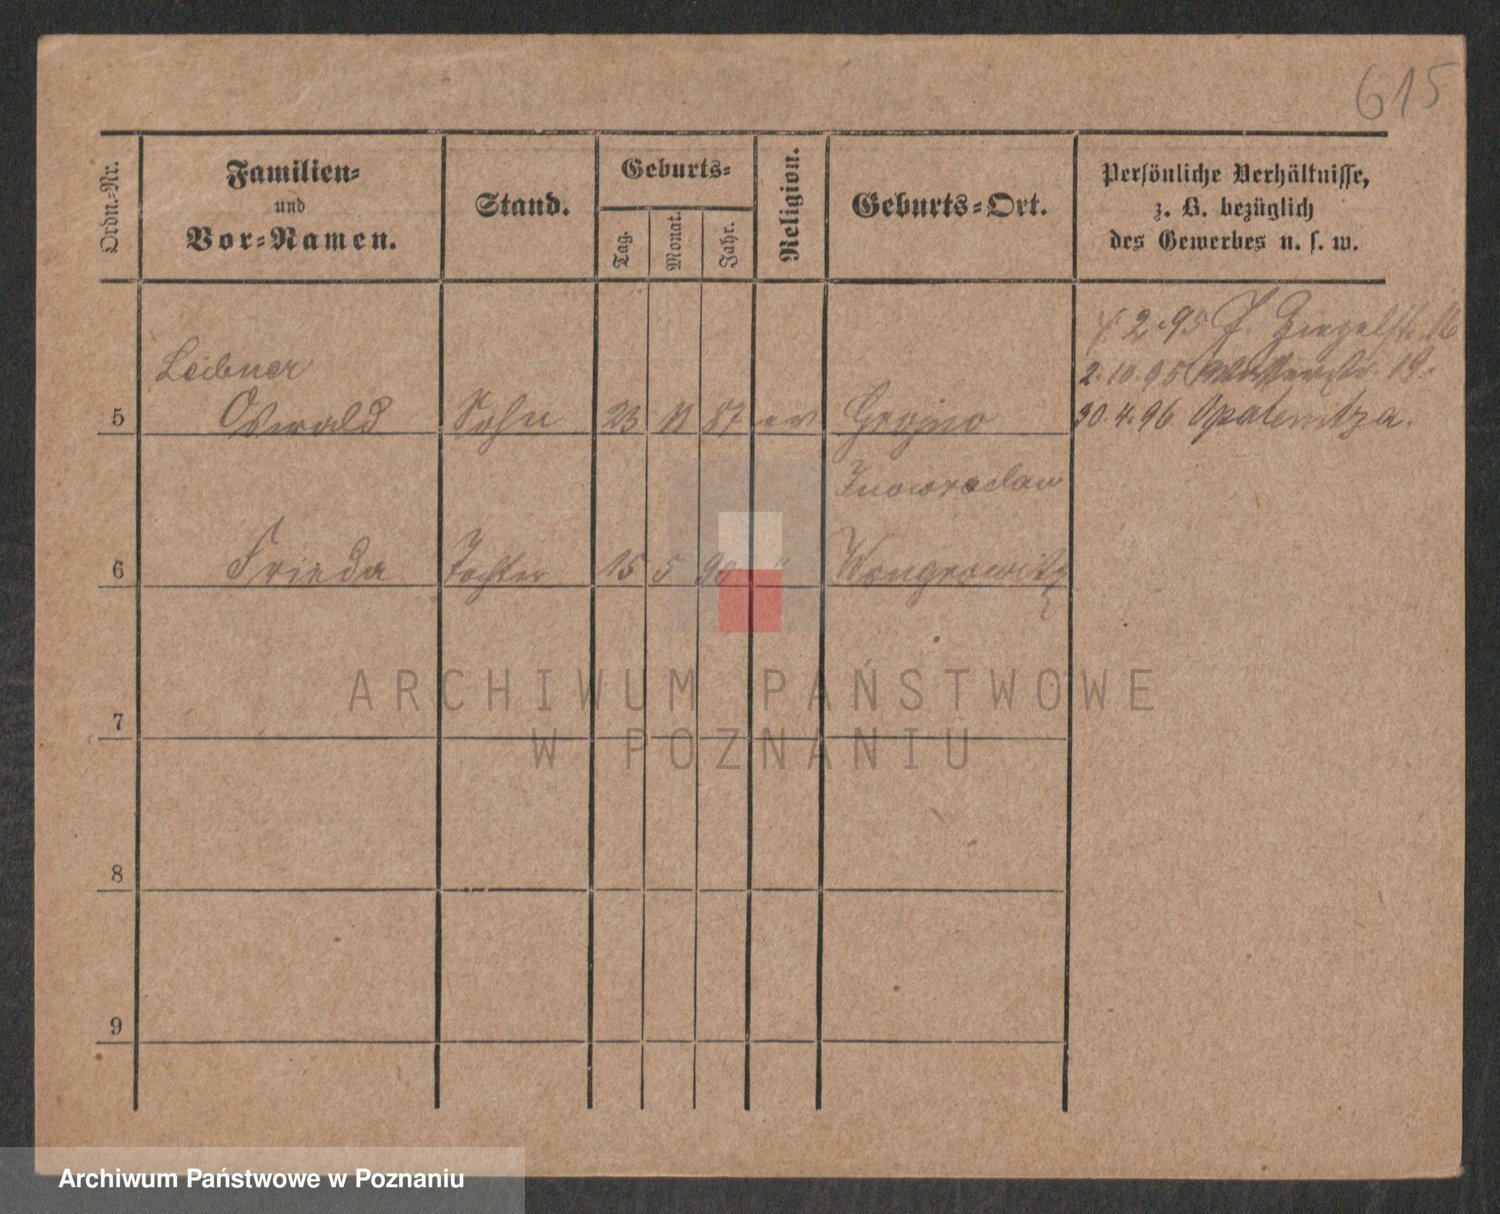 615
Ordn.-Nr.
Familien-
und
Vor-Namen.
Stand.
Geburts-
Tag.
Monat.
Jahr.
Religion.
Geburts-Ort.
Persönliche Verhältnisse,
z. B. bezüglich
des Gewerbes u. s. w.
2.95
2.10.95 19.
30.4.96 Opalenitza.
Leibner
5 Oswald Sohn 23 87 ev
Inowraclaw
6 Frieda Tochter 15 5 90 " Wongrowitz
7
8
9
ARCHIWUM PAŃSTWOWE
W POZNANIU
Archiwum Państwowe w Poznaniu